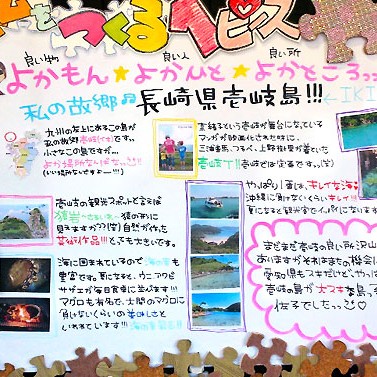 をつくるピース
良い物 良い人 良い所
よかもん★よかひと★よかところっ
私の故郷 長崎県壱岐島!!! ←IKI
九州の左上にあるこの島が
私の故郷 壱岐(いき)です。
小さなこの島ですが…
よか場所なんばなっ
(いい場所なんですよー!!!)
壱岐の観光スポットと言えば
猿岩 猿の形に
見えますか??(笑)自然が作った
芸術作品!!!とても大きいです。
海に囲まれているので 海の幸も
豊富です。夏になると、ウニ アワビ
サザエが毎日食卓に並びます!!!
マグロも有名で、大間のマグロに
負けないくらいの美味しさと
いわれています!!!
という壱岐が舞台になっている
マンガが映画化されたときに、
壱岐では全部ですっ(笑)
やっぱり夏は、キレイな海
沖縄に負けないくらいキレイ!!!
夏になると観光客で、いっぱいになります
まだまだ壱岐の良い所沢山
ありますがそれはまたの機会に
愛知県もスキだけど、やっぱ
壱岐の島が大スキな
佐子でしたっ